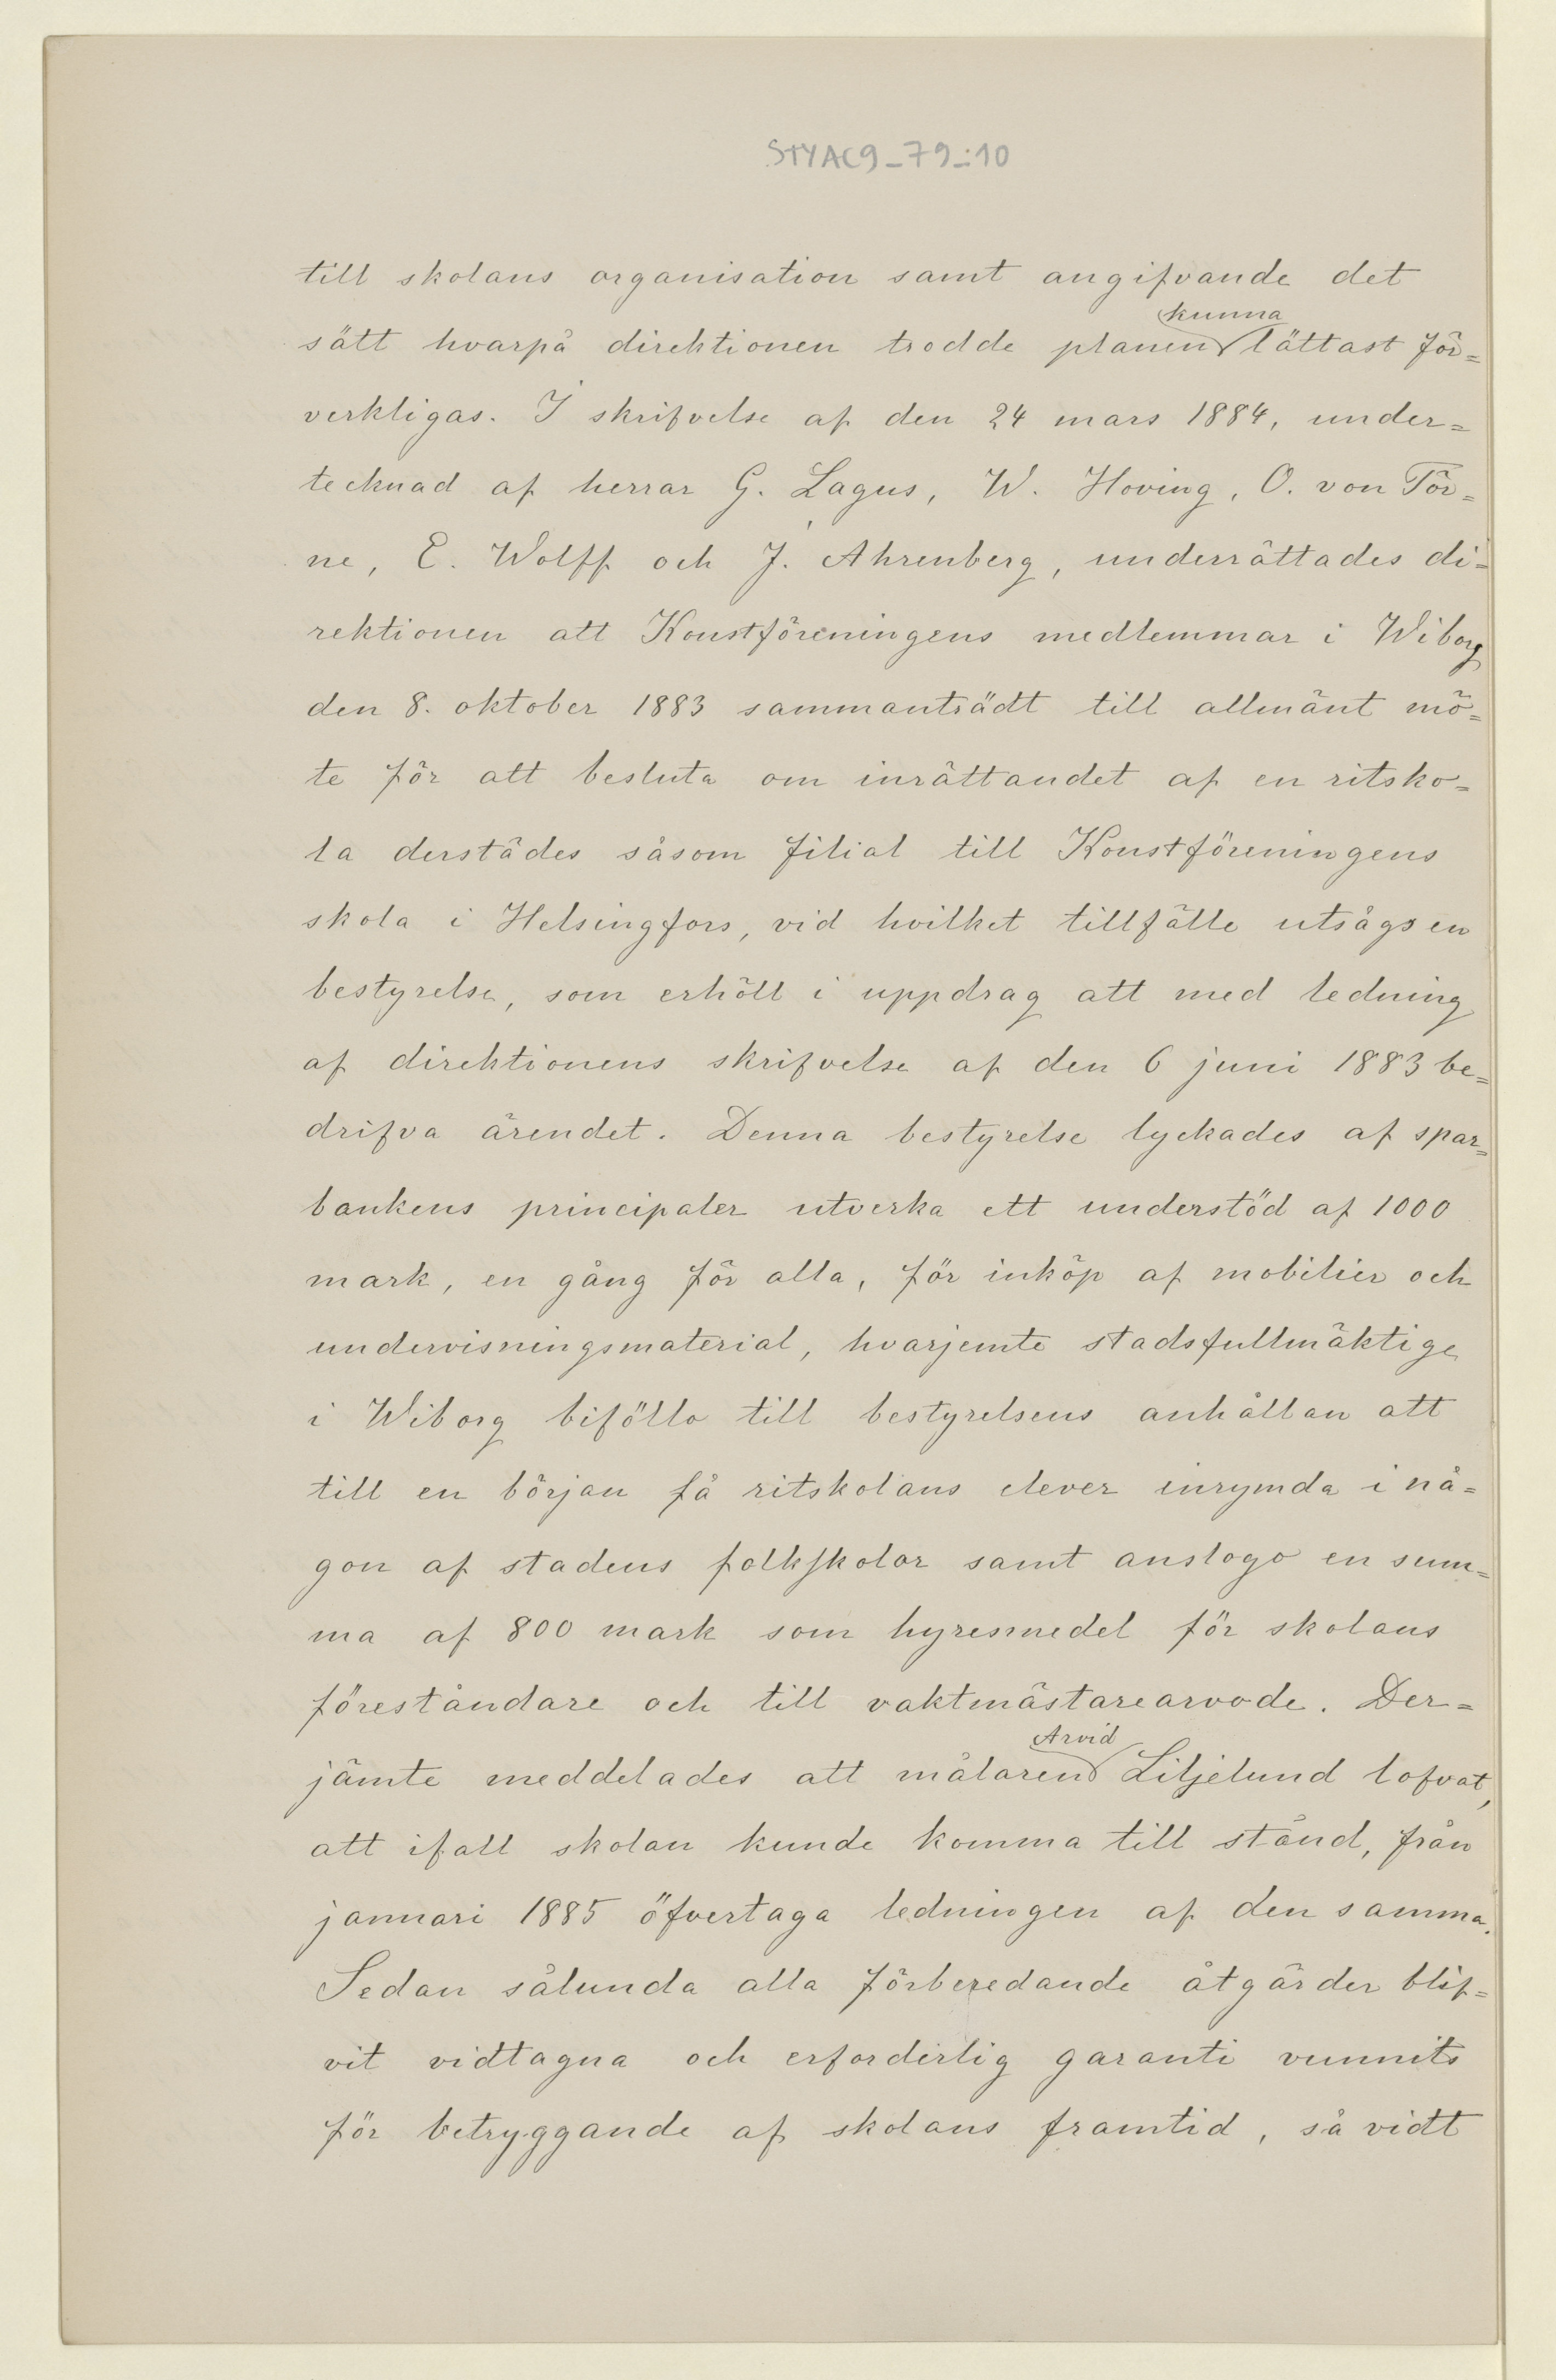 STYAC9_79_:10
till skolans organisation samt angifvande det
kunna
sätt hvarpå direktionen trodde planen lättast för=
verkligas. I skrifvelse af den 24 mars 1884, under=
tecknad af herrar G. Lagus, W. Hoving, O. von Tör=
ne, E. Wolff och J. Ahrenberg, underrättades di=
rektionen att Konstföreningens medlemmar i Wiborg
den 8. oktober 1883 sammanträdt till allmänt mö=
te för att besluta om inrättandet af en ritsko=
la derstädes såsom filial till Konstföreningens
skola i Helsingfors, vid hvilket tillfälle utsågs en
bestyrelse, som erhöll i uppdrag att med ledning
af direktionens skrifvelse af den 6 juni 1883 be=
drifva ärendet. Denna bestyrelse lyckades af spar=
bankens principaler utverka ett understöd af 1000
mark, en gång för alla, för inköp af mobilier och
undervisningsmaterial, hvarjemte stadsfullmäktige
i Wiborg biföllo till bestyrelsens anhållan att
till en början få ritskolans elever inrymda i nå=
gon af stadens folkskolor samt anslogo en sum=
ma af 800 mark som hyresmedel för skolans
föreståndare och till vaktmästarearvode. Der=
Arvid
jämte meddelades att målaren Liljelund lofvat,
att ifall skolan kunde komma till stånd, från
januari 1885 öfvertaga ledningen af den samma.
Sedan sålunda alla förberedande åtgärder blif=
vit vidtagna och erforderlig garanti vunnits
för betryggande af skolans framtid, så vidt